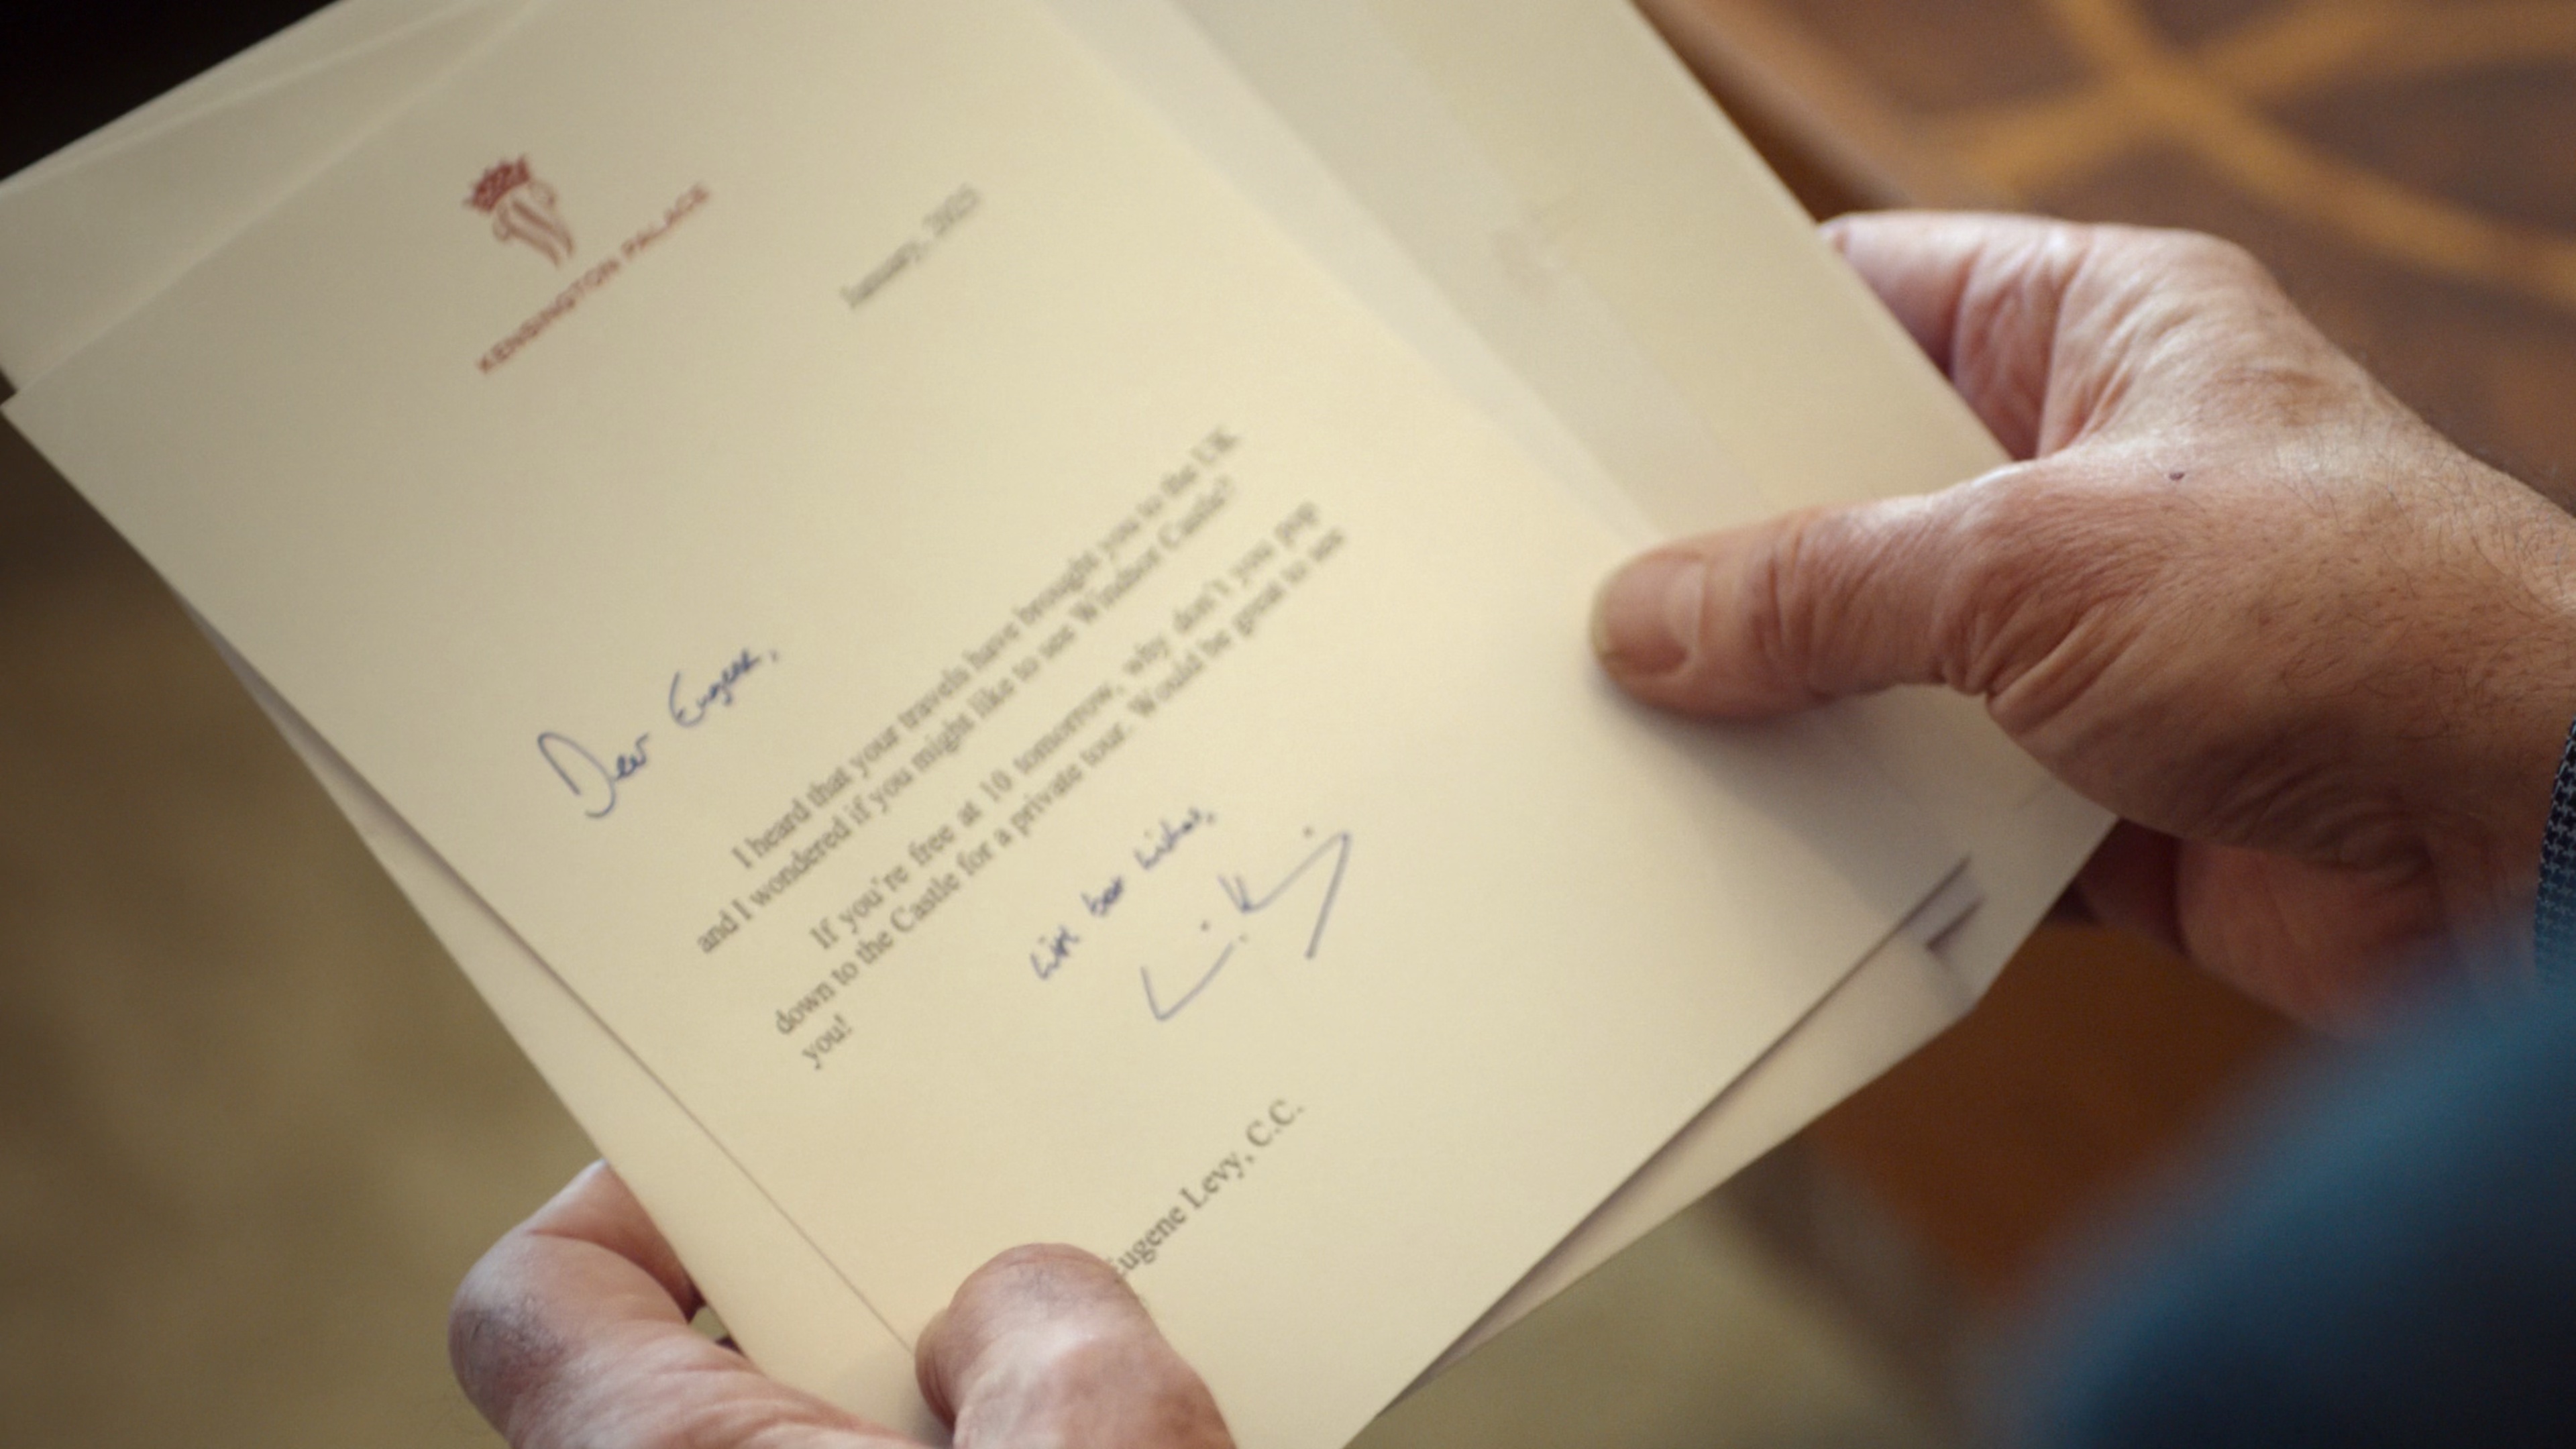 W
KENSINGTON PALACE
January, 2025
Dear Eugene,
I heard that your travels have brought you to the UK
and I wondered if you might like to see Windsor Castle?
If you're free at 10 tomorrow, why don't you pop
down to the Castle for a private tour. Would be great to see
you!
With best wishes,
William
Eugene Levy, C.C.